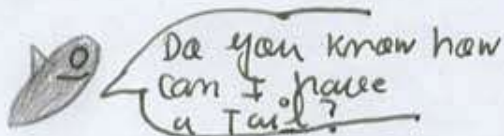 Do you know how
can I have
a Tail?